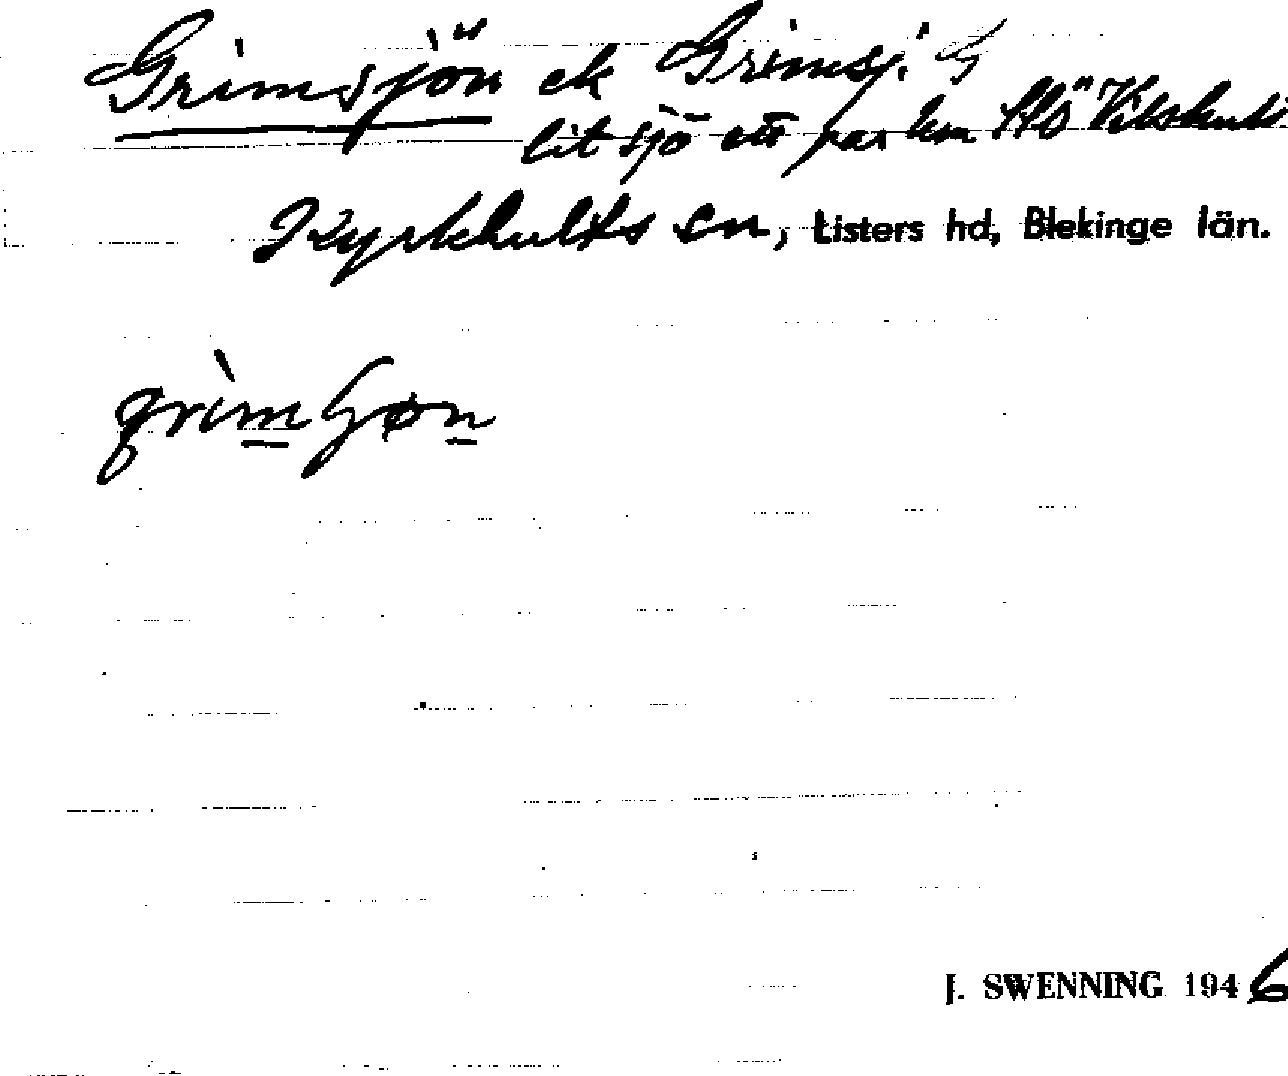 Grimsjön ek Grimsj. G
lit sjö ett par km NÖ Vilshult
Kyrkhults sn, Listers hd, Blekinge län.
grìmʃøn
J. SWENNING 1946